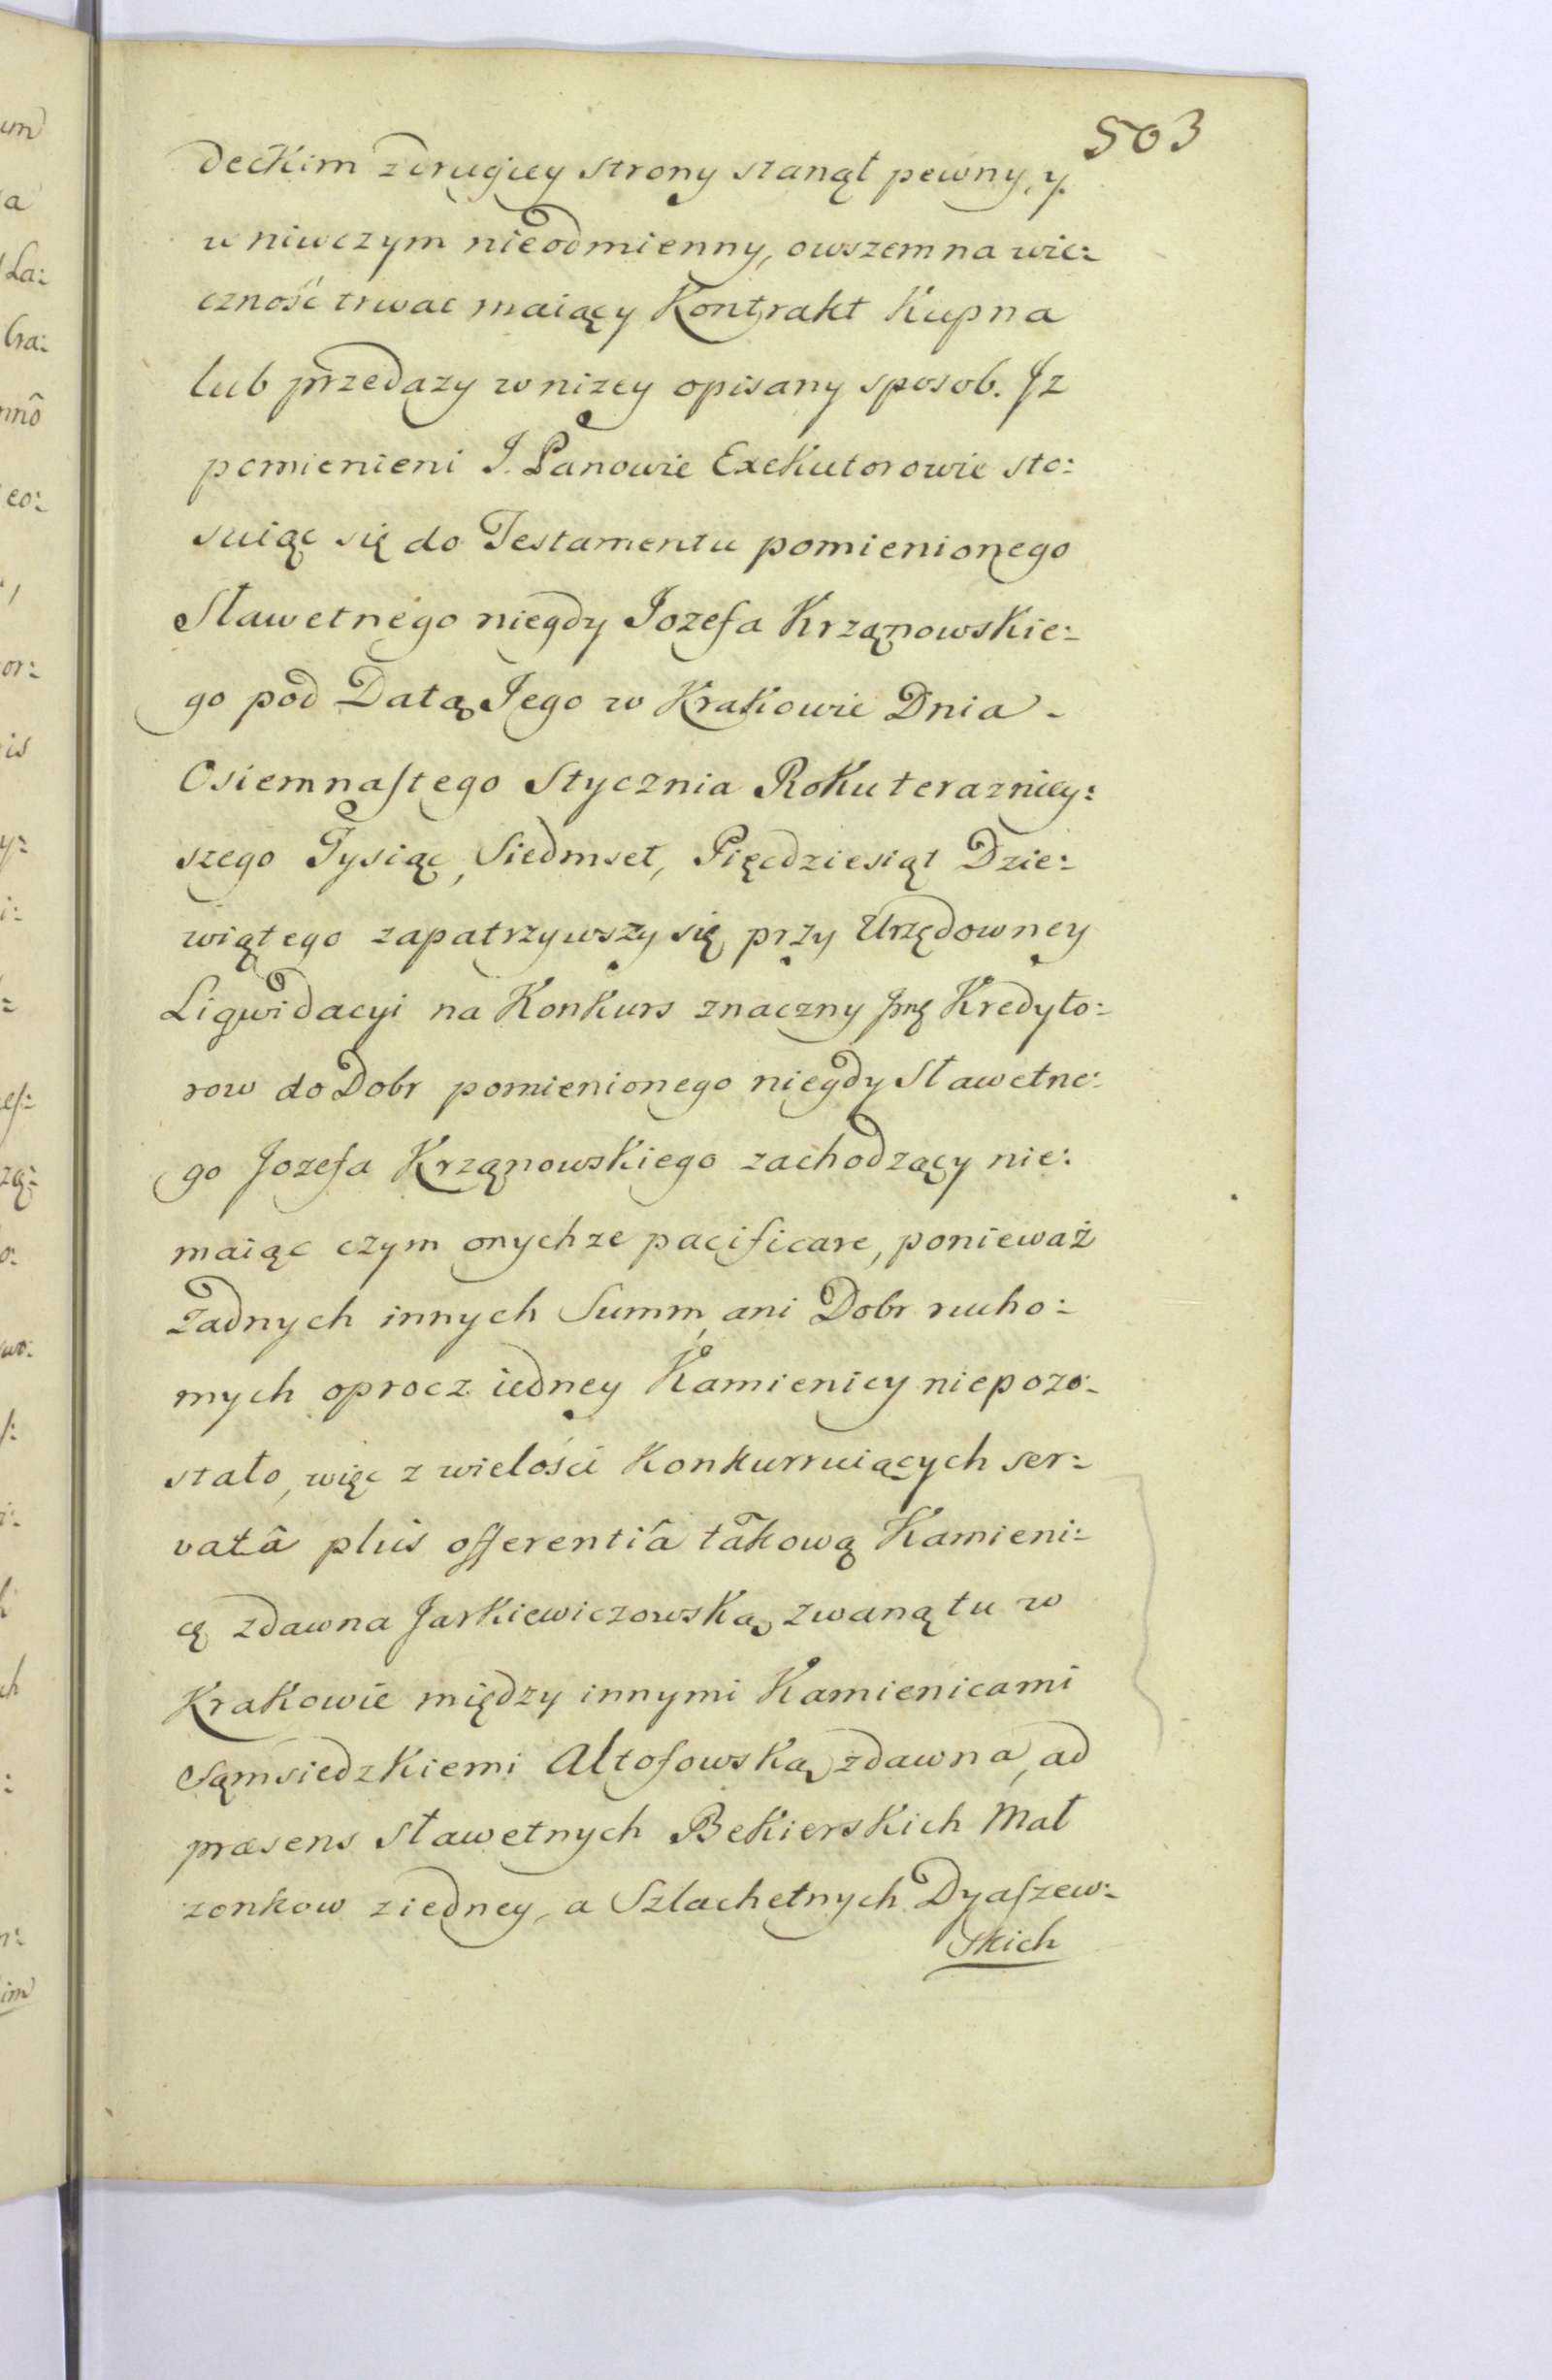 503
deckim z drugiey strony stanął pewny, y
w niwczym nieodmienny, owszem na wie:
czność trwac maiący Kontrakt Kupna
lub przedazy w nizey opisany sposob. Jz
pomienieni J. Panowie Exekutorowie sto:
suiąc się do Testamentu pomienionego
Sławetnego niegdy Jozefa Krząnowskie:
go pod Datą Jego w Krakowie Dnia -
Osiemnastego Stycznia Roku terazniey:
szego Tysiąc, Siedmset, Pięcdziesiąt Dzie:
wiątego zapatrzywszy się przy Urzędowney
Ligwidacyi na Konkurs znaczny Kredyto:
row do Dobr pomienionego niegdy Sławetne:
go Jozefa Krząnowskiego zachodzący nie:
maiąc czym onychze pacificare, ponieważ
żadnych innych Summ, ani Dobr rucho:
mych oprocz iedney Kamienicy niepozo:
stało, więc z wielości Konkurruiących ser:
vatâ plus offerentiâ takową Kamieni:
cę zdawna Jarkiewiczowską zwaną tu w
Krakowie między innymi Kamienicami
Sąmsiedzkiemi Altofowską zdawna, ad
præsens Sławetnych Bekierskich Mał
zonkow z iedney, a Szlachetnych Dyaszew:
skich
um
a
La:
bra:
nnô
eo:
or:
is
y:
i:
es:
zą:
o:
wo:
ch
im